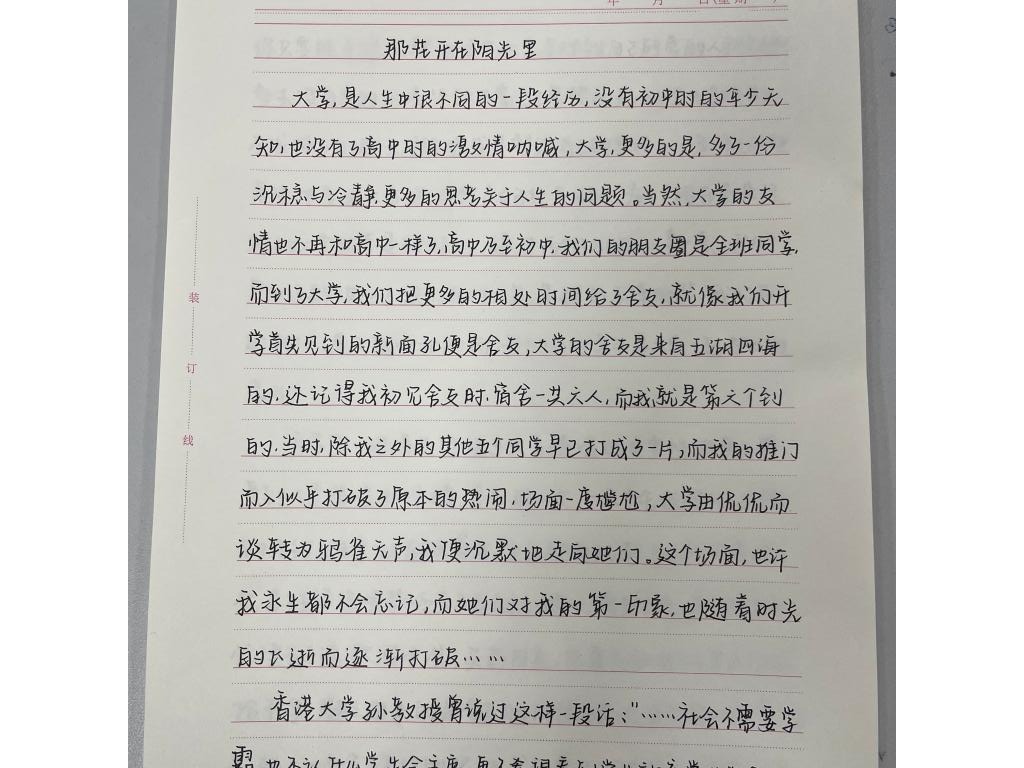 年 月 日(星期 )
那花开在阳光里
大学,是人生中很不同的一段经历,没有初中时的年少无
知,也没有了高中时的激情呐喊,大学,更多的是,多了一份
沉稳与冷静,更多的思考关于人生的问题。当然,大学的友
情也不再和高中一样了,高中乃至初中,我们的朋友圈是全班同学,
而到了大学,我们把更多的相处时间给了舍友,就像我们开
学首先见到的新面孔便是舍友,大学的舍友是来自五湖四海
的,还记得我初见舍友时,宿舍一共六人,而我就是第六个到
的,当时,除我之外的其他五个同学早已打成了一片,而我的推门
而入似乎打破了原本的热闹,场面一度尴尬,大学由侃侃而
谈转为鸦雀无声,我便沉默地走向她们。这个场面,也许
我永生都不会忘记,而她们对我的第一印象,也随着时光
的飞逝而逐渐打破……
香港大学孙教授曾说过这样一段话:"……社会不需要学
霸
装
订
线